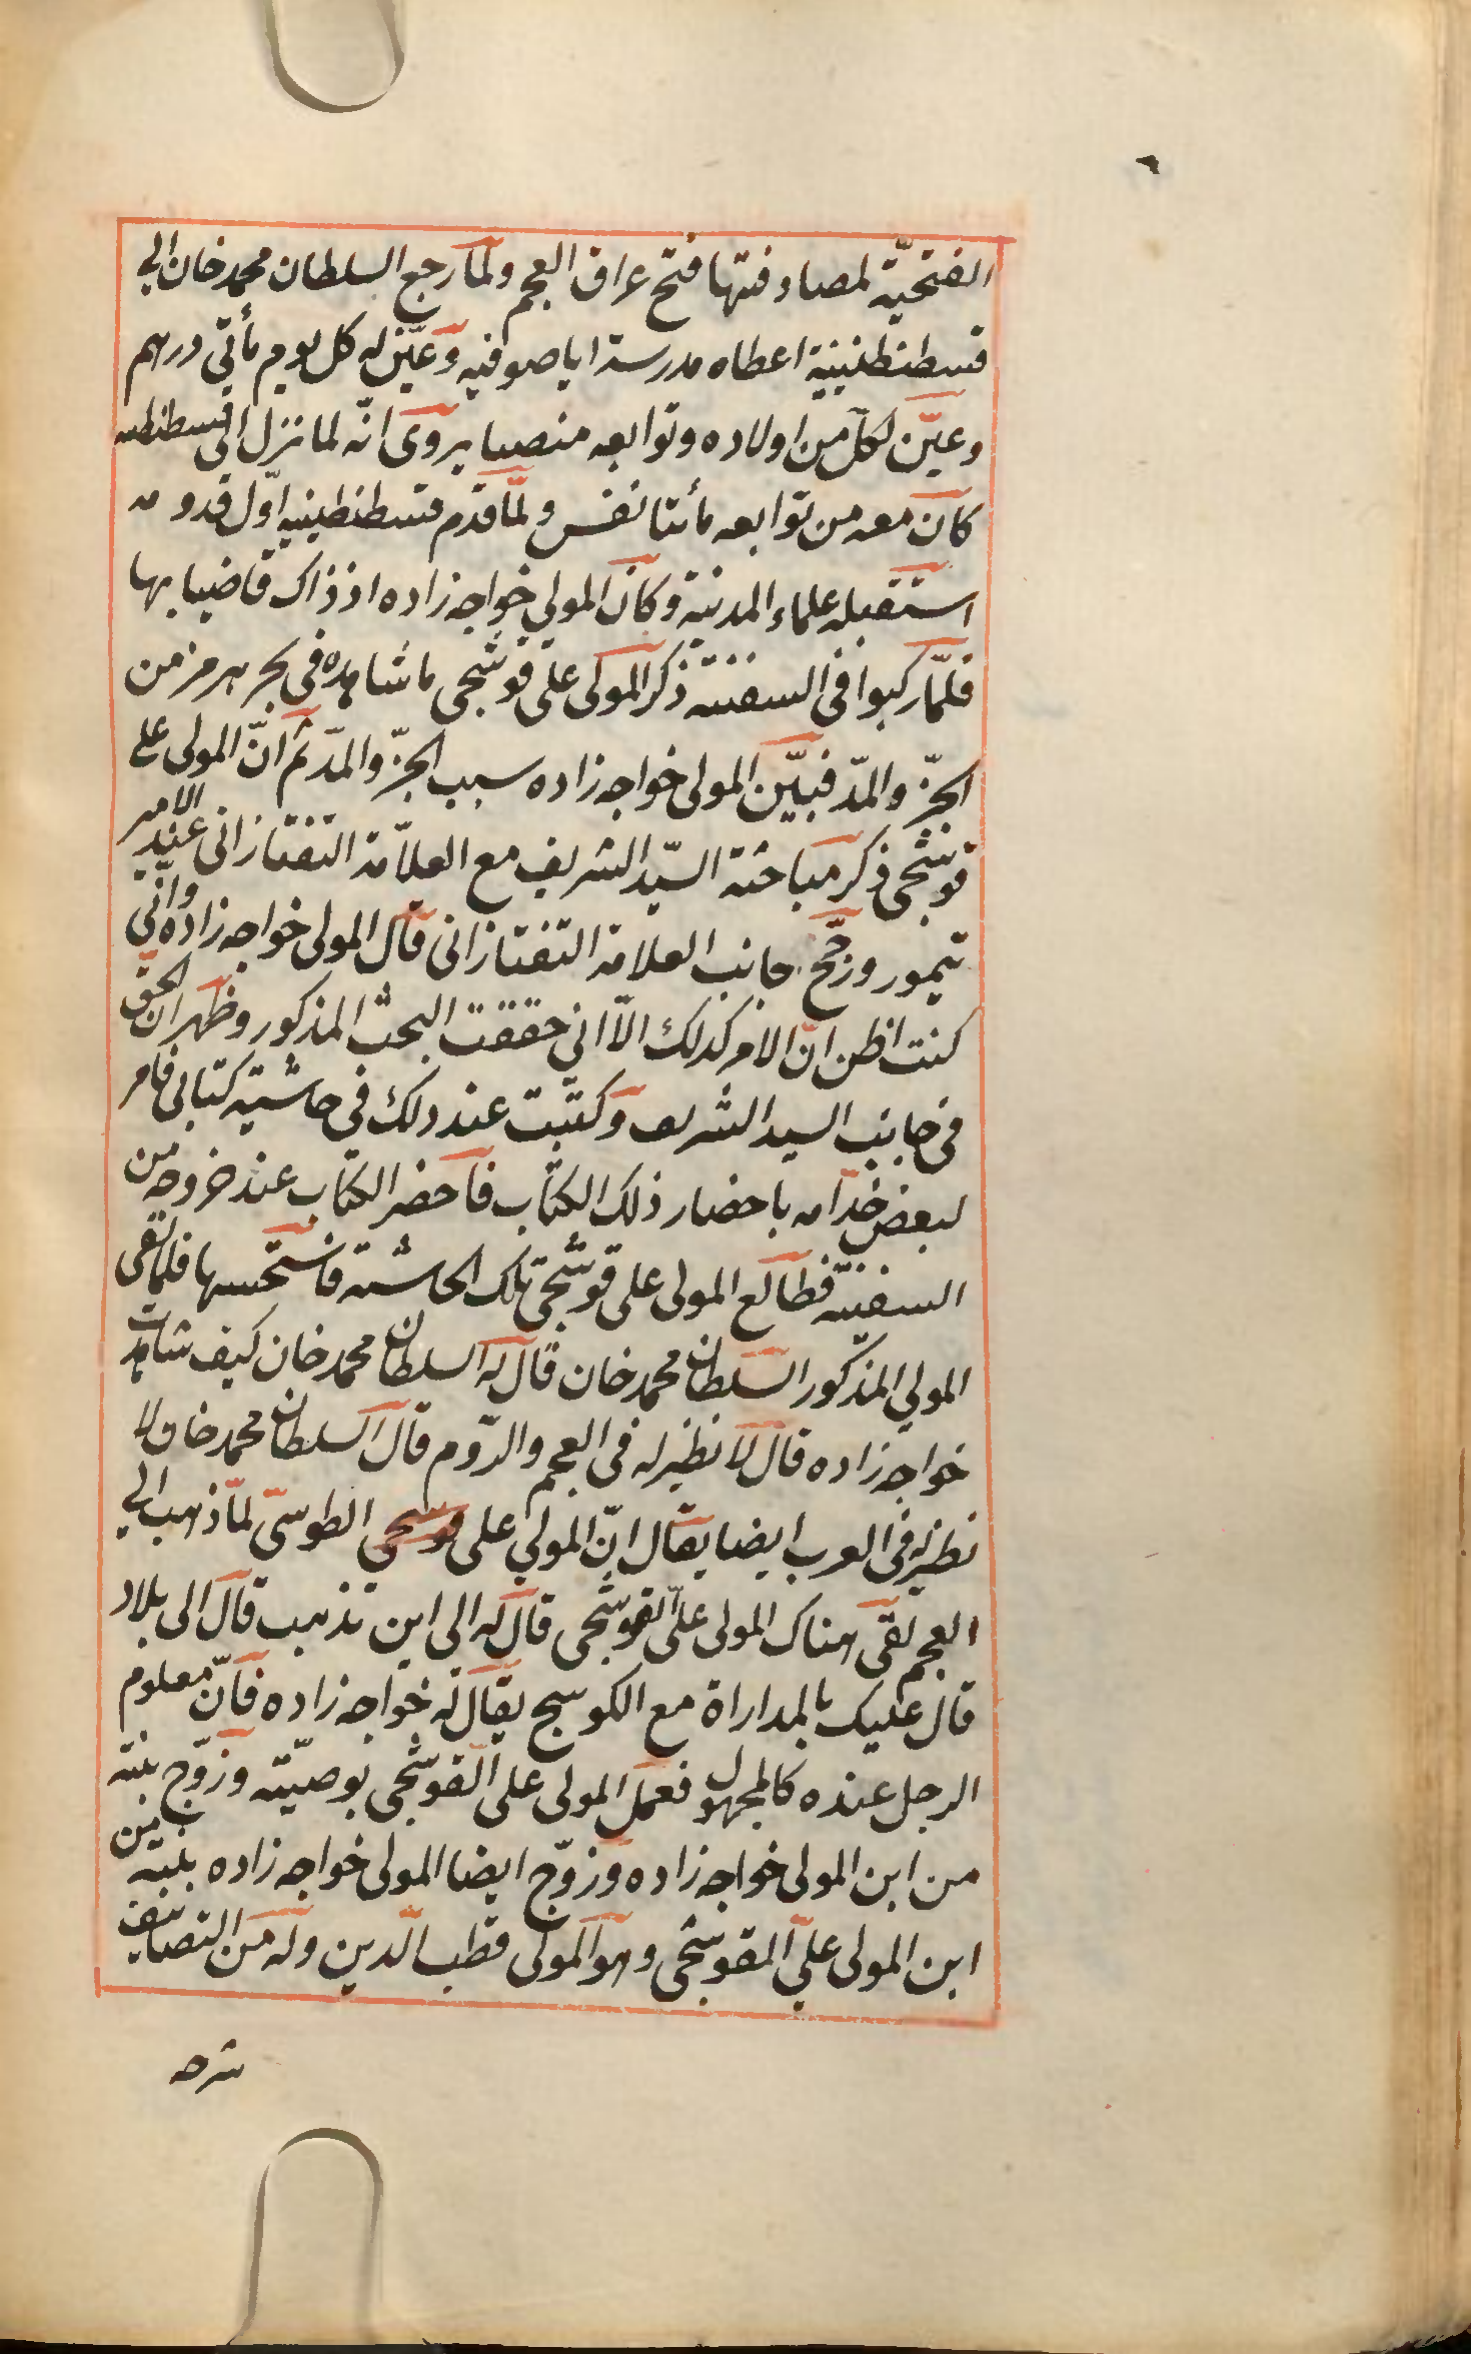 ٩
الفتحيّة لمصادفتها فتح عراق العجم ولمّا رجع السلطان محمد خان الى
قسطنطنينية اعطاه مدرسة اياصوفيه وعيّن له كل يوم مأتى درهم
وعيّن لكلّ من اولاده وتوابعه منصبا يروى انّه لما نزل الى قسطنطنيه
كان معه من توابعه مأتا نفس ولمّا قدم قسطنطينيه اوّل قدومه
استقبله علماء المدنية وكان المولى خواجه زاده اذ ذاك قاضيا بها
فلمّا ركبوا فى السفينة ذكر المولى على قوشجى ما شاهده فى بحر هرمز من
الجزّ والمدّ فبيّن المولى خواجه زاده سبب الجزّ والمدّ ثم انّ المولى على
قوشجى ذكر مباحثة السيّد الشريف مع العلاّمة التفتازانى عند الامير
تيمور ورجّح جانب العلامة التفتازانى قال المولى خواجه زاده وانّى
كنت اظن انّ الامر كذلك الاّ انى حققت البحث المذكور وظهر ان الحق
فى جانب السيد الشريف وكتبت عند ذلك فى حاشية كتابى فامر
لبعض خدامه باحضار ذلك الكتاب فاحضر الكتاب عند خروجه من
السفينة فطالع المولى على قوشجى تلك الحاشية فاستحسنها فلما لقى
المولى المذكور السلطان محمد خان قال له السلطان محمد خان كيف شاهدت
خواجه زاده قال لا نظير له فى العجم والرّوم قال السلطان محمد خان لا
نظير له فى العرب ايضا يقال انّ المولى على قوسحى الطوسىّ لمّا ذهب الى
العجم لقى هناك المولى علىّ القوشجى قال له الى اين تذهب قال الى بلاد
قال عليك بالمداراة مع الكوسج يقال له خواجه زاده فانّ معلوم
الرجل عنده كالمجهول فعمل المولى على القوشجى بوصيّته وزوّج بنته
من ابن المولى خواجه زاده وزوّج ايضا المولى خواجه زاده بنته من
ابن المولى علىّ القوشجى وهو المولى قطب الدين وله من التصانيف
شرحه